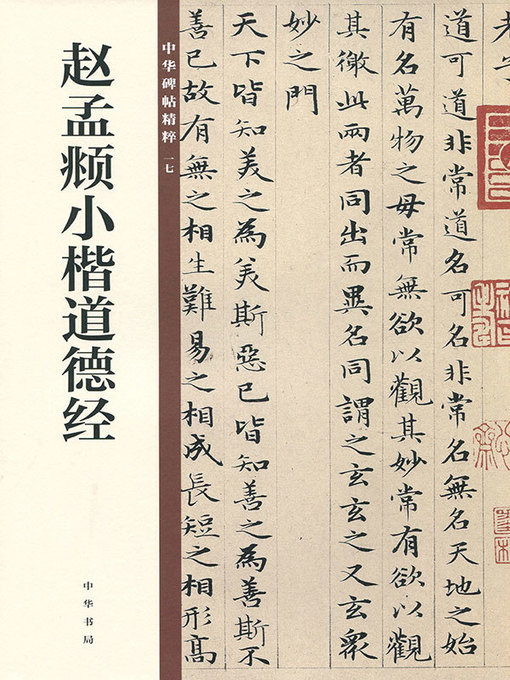 赵孟𫖯小楷道德经
中华书局
中华碑帖精粹 一七
道可道非常道名可名非常名無名天地之始
有名萬物之母常無欲以觀其妙常有欲以觀
其徼此兩者同出而異名同謂之玄玄之又玄眾
妙之門
天下皆知美之為美斯惡已皆知善之為善斯不
善已故有無之相生難易之相成長短之相形高